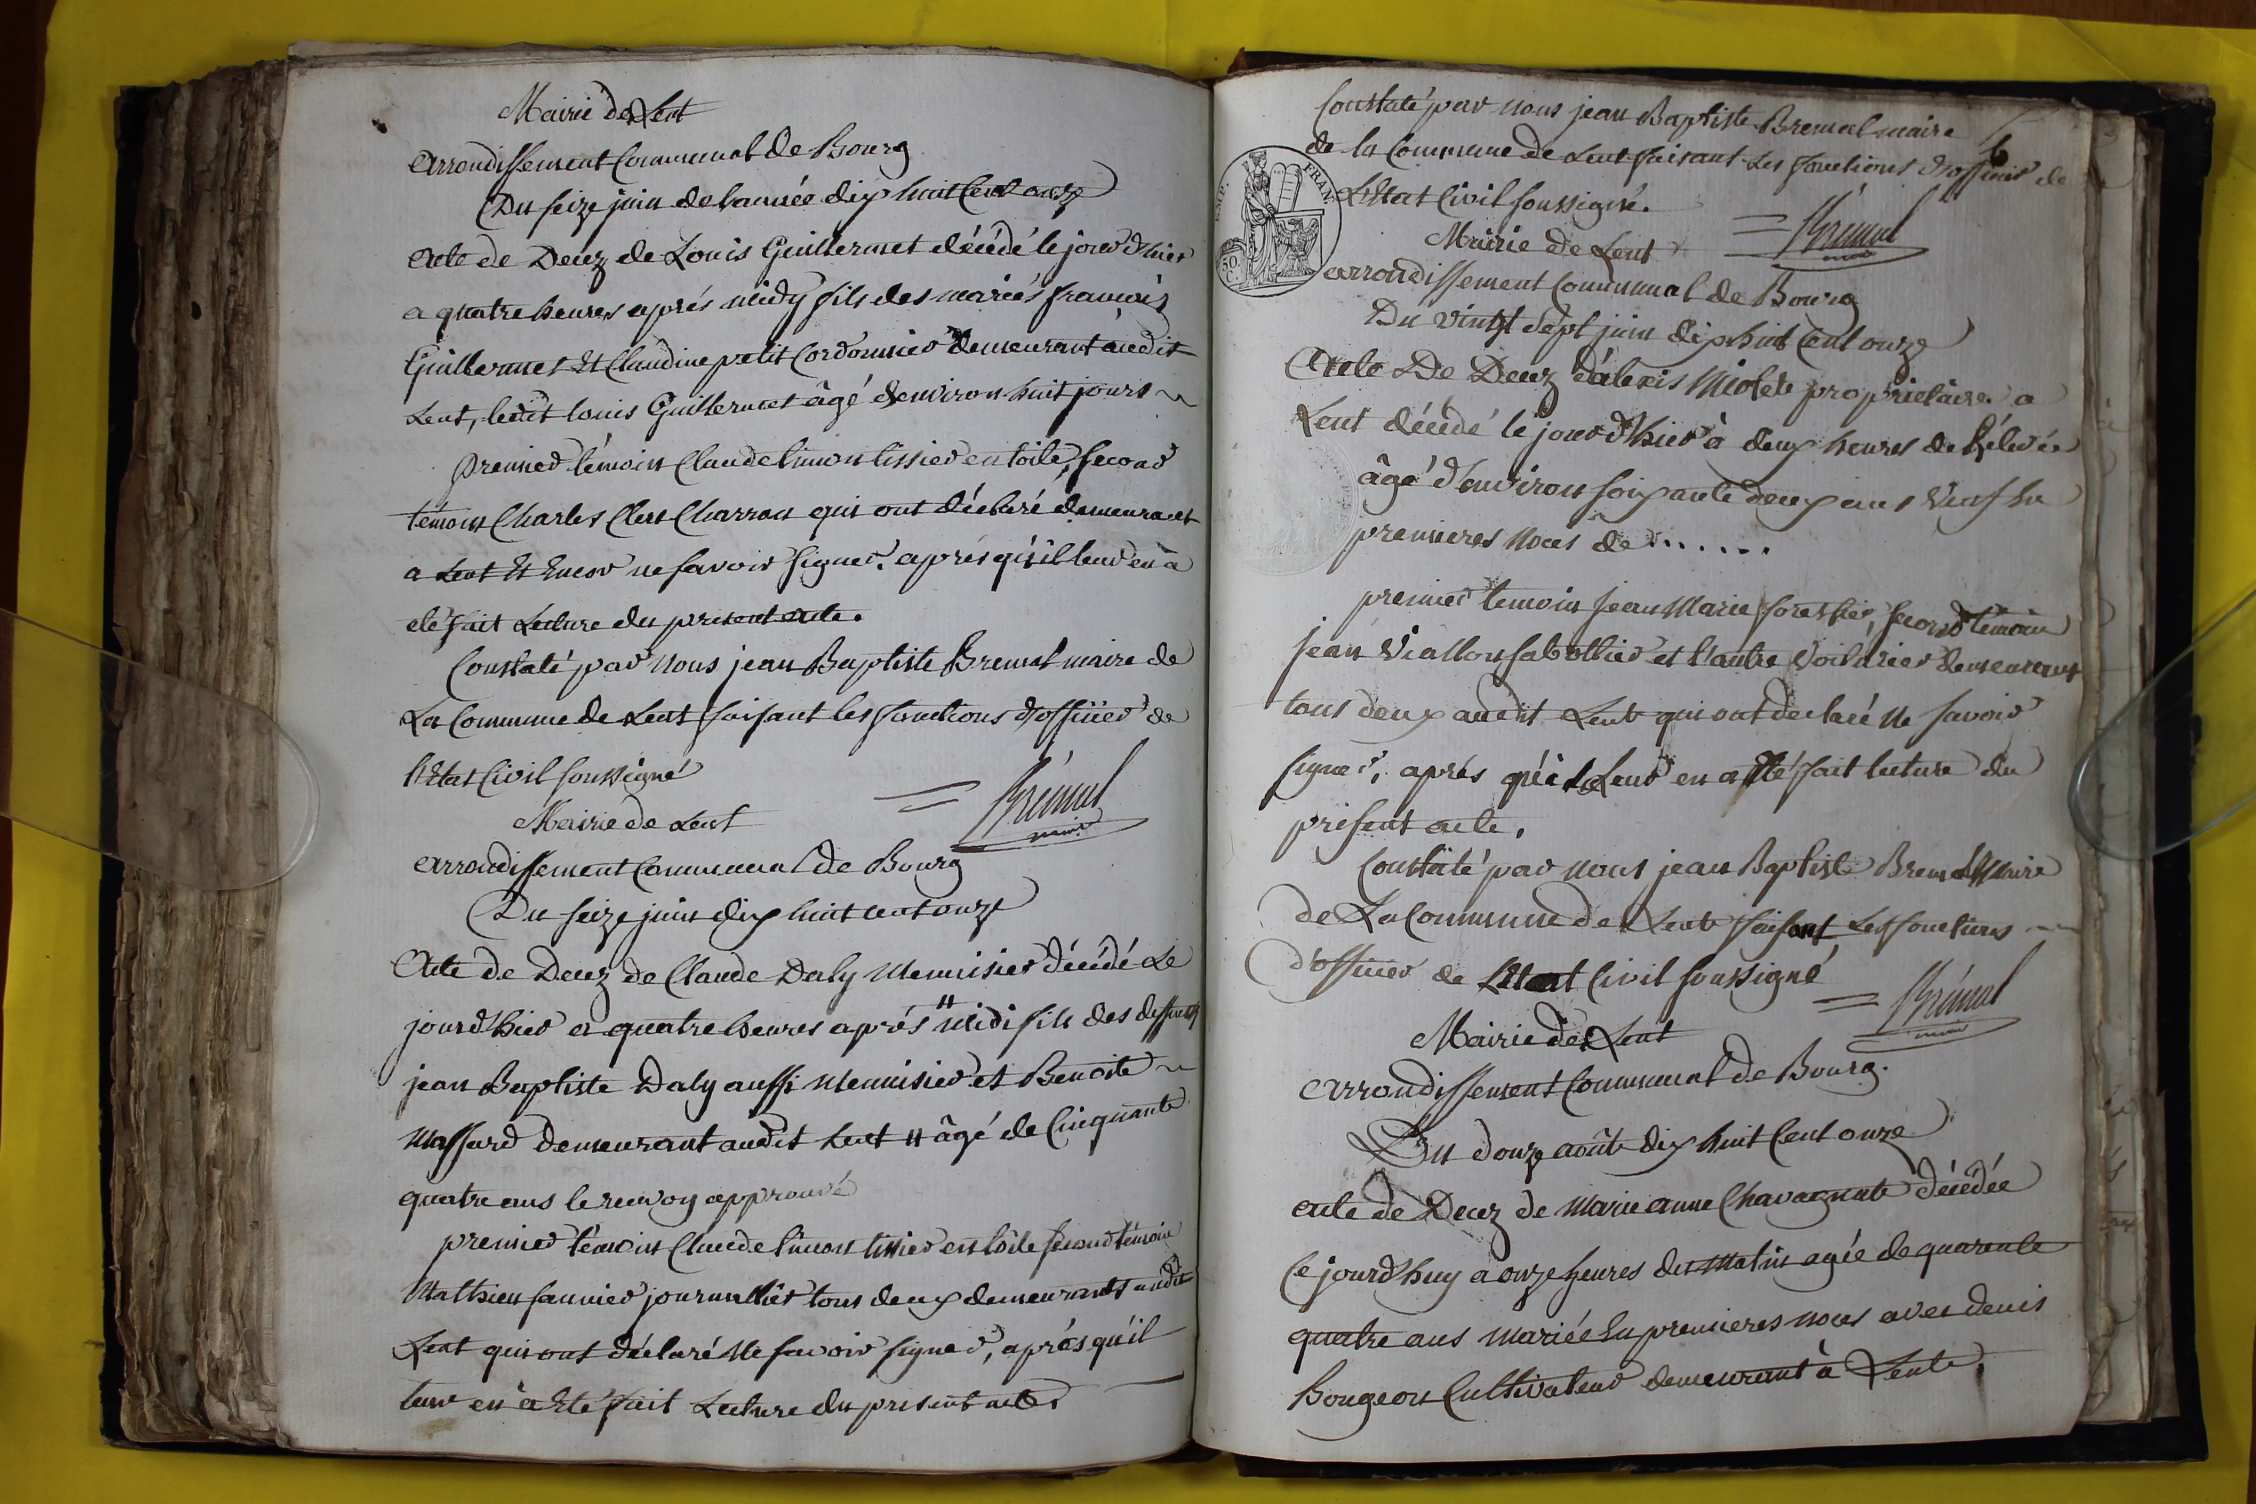 Mairie de Lent
arrondissement Communal de Bourg
Du seize juin de l'année dix huit Cent onze
acte de Decez de Louis Guillermet décédé le jour d'hier
a quatre heures après midy fils des mariés françois
Guillermet Et Claudine petit Cordonnier demeurant audit
Lent, ledit louis Guillermet âgé d'environ huit jours
premier témoin Claude limon tissier en toile, second
témoin Charles Clerc Charron qui ont déclaré demeurant
a Lent Et Encor ne savoir signer. après qu'il leur en a
eté fait Lecture du present acte.
Constaté par Nous jean Baptiste Bremal maire de
La Commune de Lent faisant les fonctions d'officier de
l'Etat Civil soussigné
= Brémal
maire
Mairie de Lent
arrondissement Communal de Bourg
Du seize juin dix huit cent onze
Acte de Decez de Claude Daly Menuisier décédé Le
jourd'hier a quatre heures après " midi fils des deffunts
jean Baptiste Daly aussi Menuisier et Benoite
Massard demeurant audit Lent " âgé de Cinquante
quatre ans le renvoy approuvé
premier témoin Claude limon tissier en toile second témoin
Mathieu fannier journallier tous deux demeurants audit
Lent qui ont déclaré Ne savoir signer, après qu'il
leur en a Eté fait Lecture du present acte.
Constaté par nous jean Baptiste Bremal maire
de la Commune de Lent faisant Les fonctions d'officier de
L'Etat Civil soussigné.
EMP. FRAN.
50 C.
= Brémal
maire
Mairie de Lent
arrondissement Communal de Bourg
Du vingt sept juin dix huit Cent onze
Acte De Decez d'alexis Miolet propriétaire a
Lent décédé le jour d'hier à deux heures de Rélevée
âgé d'environ soixante deux ans Veuf En
premieres Noces de .......
premier temoin Jean Marie forestier, second témoin
Jean Viallon sabottier et l'autre Voiturier demeurant
tous deux audit Lent qui ont declaré Ne savoir
signer, après qu'il Leur en a Eté fait lecture du
présent acte.
Constaté par nous jean Baptiste Bremal Maire
de La Commune de Lent faisant Les fonctions
d'officier de L'Etat Civil soussigné
= Brémal
maire
Mairie de Lent
arrondissement Communal de Bourg.
Du douze août dix huit Cent onze
acte de Decez de Marie anne Chavagnat décédée
Ce jourd'huy a onze heures du Matin agée de quarente
quatre ans Mariée En premieres noces avec denis
Bougeon Cultivateur demeurant à Lent,